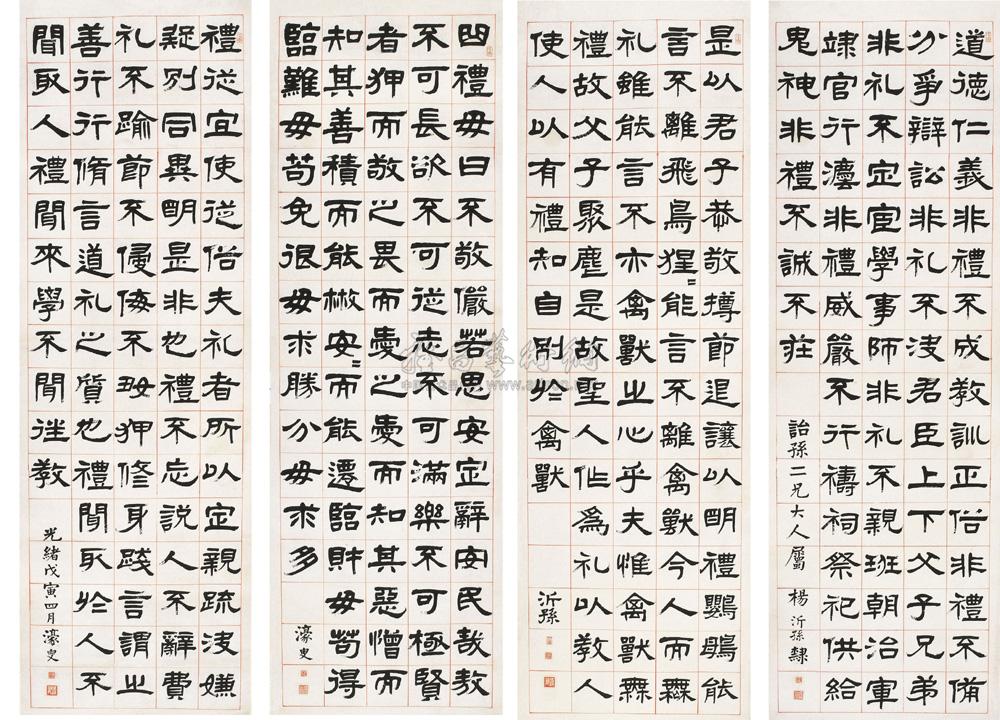 道德仁義非禮不成教訓正俗非禮不備
分爭辯訟非礼不決君臣上下父子兄弟
非礼不定宦學事師非礼不親班朝治軍
䇐官行灋非禮威嚴不行禱祠祭祀供給
鬼神非禮不誠不莊
詒孫二兄大人屬 楊沂孫隸
是以君子恭敬撙節退讓以明禮鸚鵡能
言不離飛鳥猩=能言不離禽獸今人而無
礼雖能言不亦禽獸之心乎夫惟禽獸無
禮故父子聚麀是故聖人作為礼以教人
使人以有禮知自別於禽獸
沂孫
曲禮毋曰不敬儼若思安定辭安民哉教
不可長欲不可從志不可滿樂不可極賢
者狎而敬之畏而愛之愛而知其惡憎而
知其善積而能散安=而能遷臨財毋苟得
臨難毋苟免很毋求勝分毋求多
濠叟
禮從宜使從俗夫礼者所以定親疏決嫌
疑別同異明是非也禮不忘說人不辭費
礼不踰節不侵侮不好狎修身踐言謂之
善行行脩言道礼之質也禮聞取於人不
聞取人禮聞來學不聞往教
光緒戊寅四月濠叟